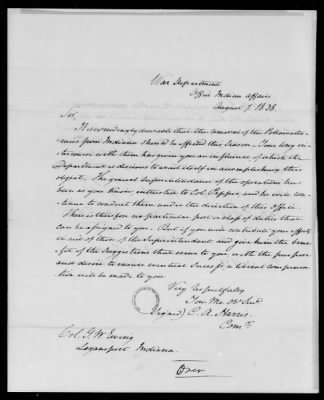 War Department
Office Indian Affairs
August 7. 1838.
Sir,
It is exceedingly desirable that the removal of the Pottawatta-
mies from Indiana should be effected this season. Your long in-
tercourse with them has given you an influence of which the
Department is desirous to avail itself in accomplishing this
object. The general superintendence of the operation has
been as you know entrusted to Col. Pepper and he will con-
tinue to conduct them under the direction of this Office.
There is therefore no particular post or class of duties that
can be assigned to you. But if you will contribute your efforts
in aid of those of the Superintendent and give him the bene-
fit of the suggestions that occur to you with the purpose
and desire to ensure eventual success, a liberal compensa-
tion will be made to you
Very Respectfully
Your Mo. Ob. Serv.
(Signed) C. A. Harris.
Comr.
Col. G. W. Ewing
Logansport Indiana.
Over